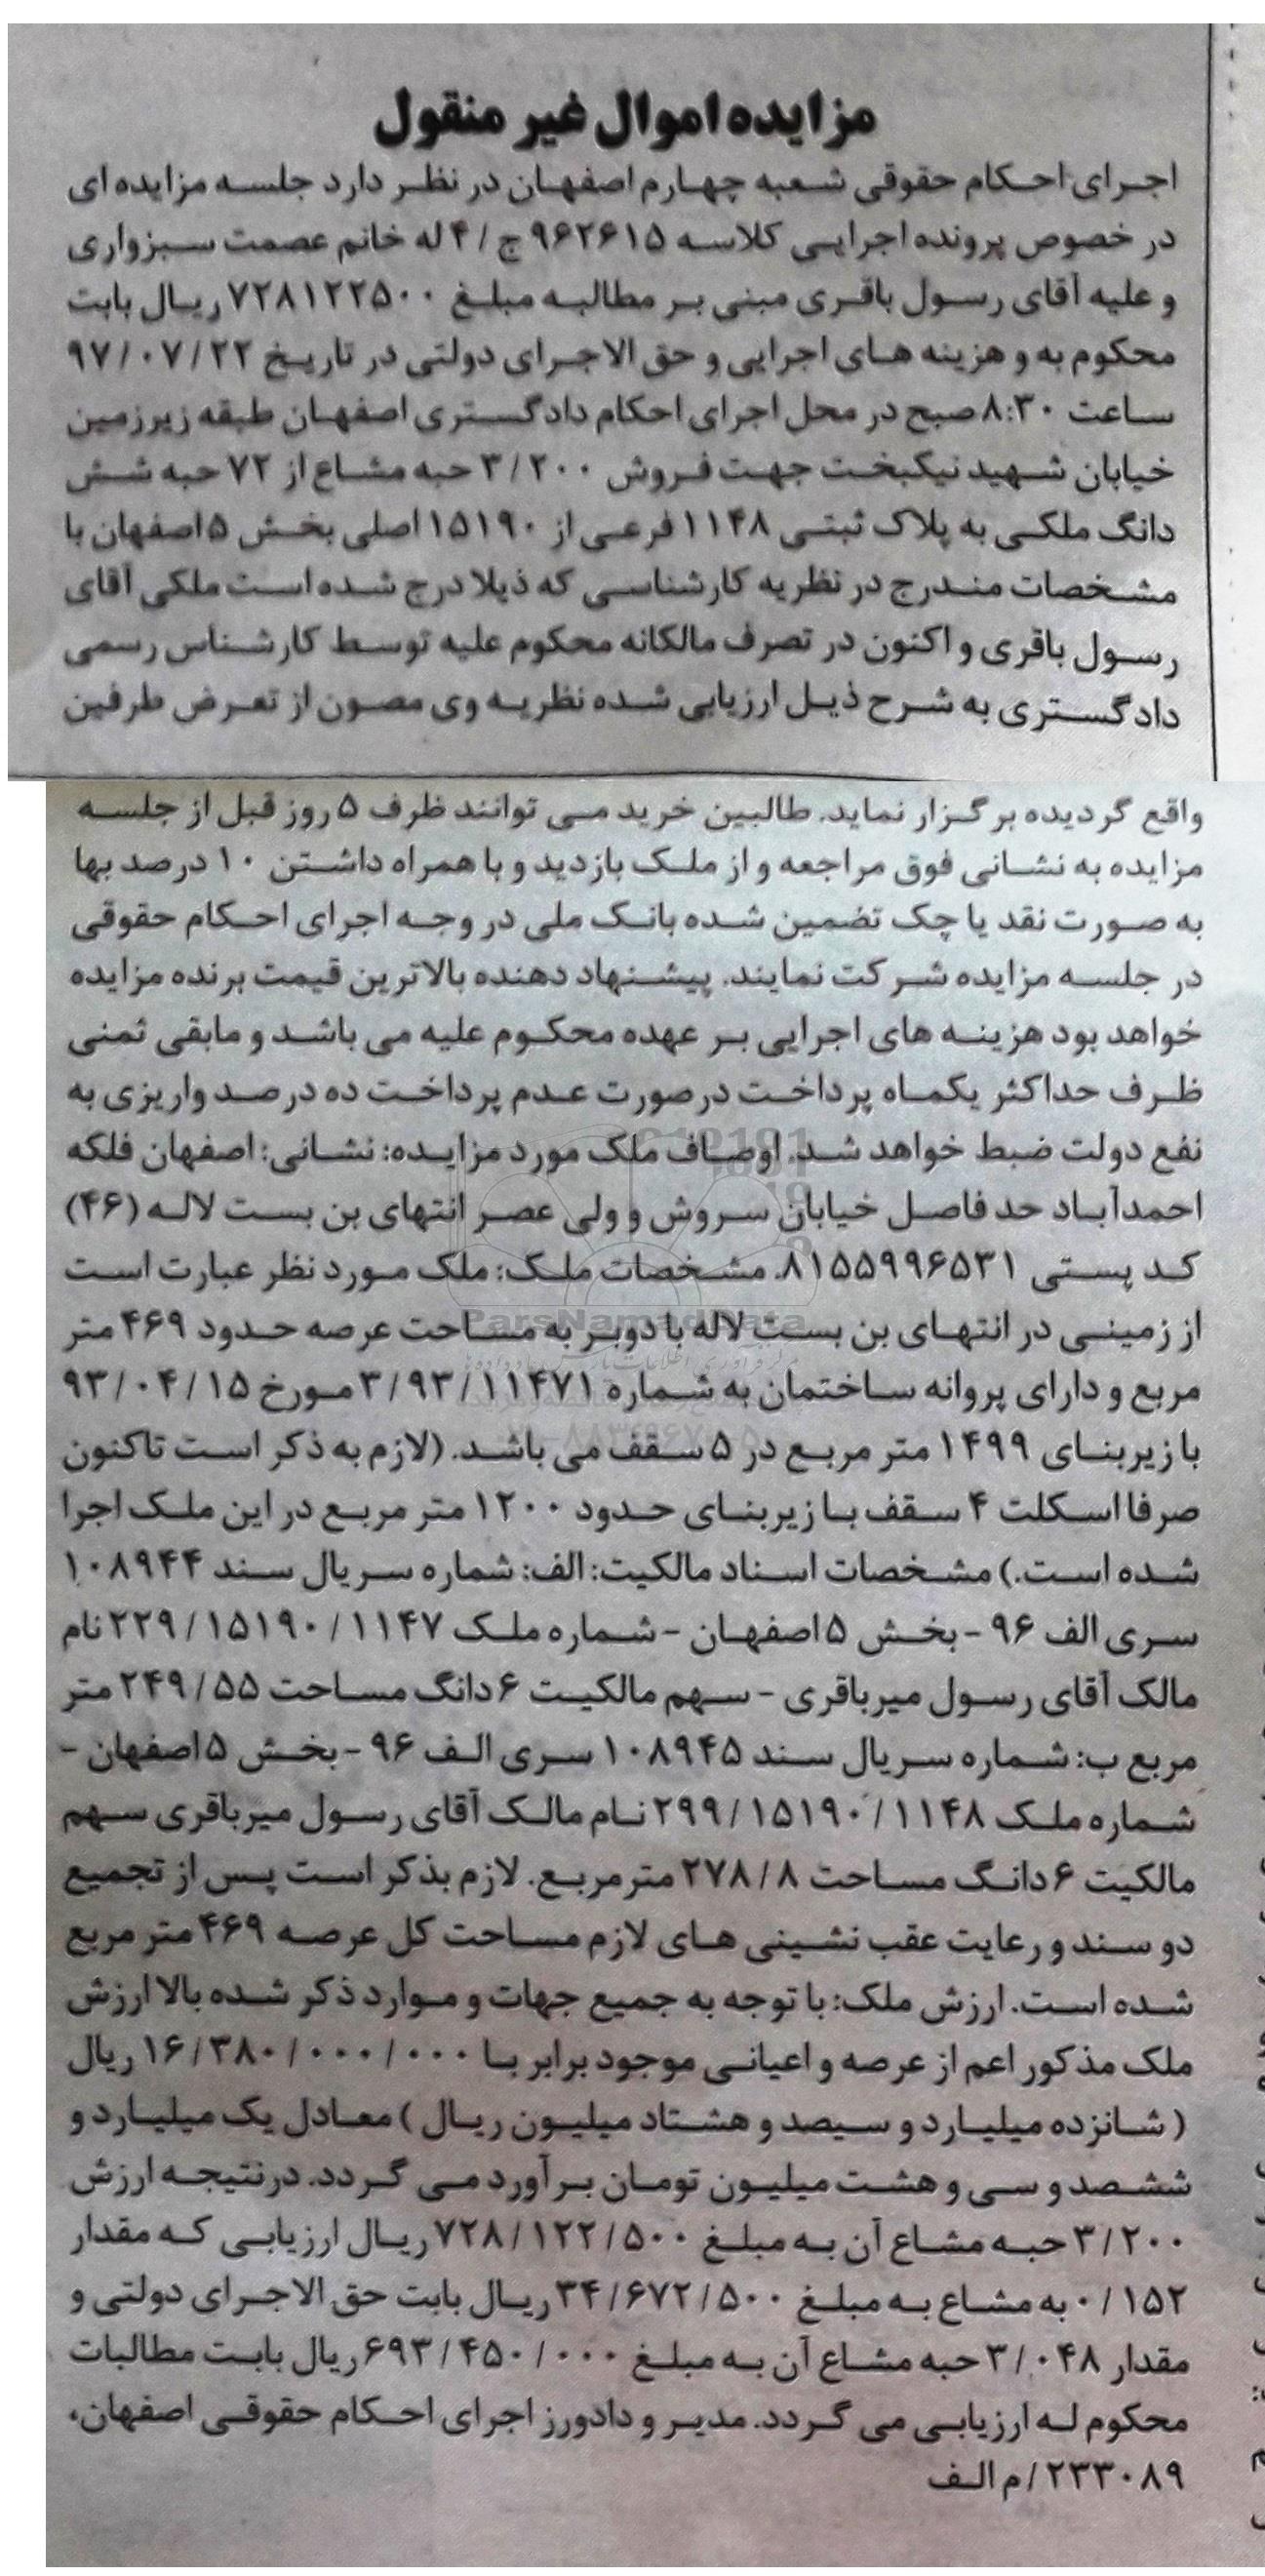 مزایده اموال غیر منقول
اجرای احکام حقوقی شعبه چهارم اصفهان در نظر دارد جلسه مزایده ای
در خصوص پرونده اجرایی کلاسه ۹۶۲۶۱۵ ج / ۴ له خانم عصمت سبزواری
و علیه آقای رسول باقری مبنی بر مطالبه مبلغ ۷۲۸۱۲۲۵۰۰ ریال بابت
محکوم به و هزینه های اجرایی و حق الاجرای دولتی در تاریخ ۹۷/۰۷/۲۲
ساعت ۸:۳۰ صبح در محل اجرای احکام دادگستری اصفهان طبقه زیرزمین
خیابان شهید نیکبخت جهت فروش ۳/۲۰۰ حبه مشاع از ۷۲ حبه شش
دانگ ملکی به پلاک ثبتی ۱۱۴۸ فرعی از ۱۵۱۹۰ اصلی بخش ۵ اصفهان با
مشخصات مندرج در نظریه کارشناسی که ذیلا درج شده است ملکی آقای
رسول باقری و اکنون در تصرف مالکانه محکوم علیه توسط کارشناس رسمی
دادگستری به شرح ذیل ارزیابی شده نظریه وی مصون از تعرض طرفین
واقع گردیده برگزار نماید. طالبین خرید می توانند ظرف ۵ روز قبل از جلسه
مزایده به نشانی فوق مراجعه و از ملک بازدید و با همراه داشتن ۱۰ درصد بها
به صورت نقد یا چک تضمین شده بانک ملی در وجه اجرای احکام حقوقی
در جلسه مزایده شرکت نمایند. پیشنهاد دهنده بالاترین قیمت برنده مزایده
خواهد بود هزینه های اجرایی بر عهده محکوم علیه می باشد و مابقی ثمنی
ظرف حداکثر یکماه پرداخت درصورت عدم پرداخت ده درصد واریزی به
نفع دولت ضبط خواهد شد. اوصاف ملک مورد مزایده: نشانی: اصفهان فلکه
احمدآباد حد فاصل خیابان سروش و ولی عصر انتهای بن بست لاله (۴۶)
کد پستی ۸۱۵۵۹۹۶۵۳۱. مشخصات ملک: ملک مورد نظر عبارت است
از زمینی در انتهای بن بست لاله با دوبر به مساحت عرصه حدود ۴۶۹ متر
ParsNamadData
مربع و دارای پروانه ساختمان به شماره ۳/۹۳/۱۱۴۷۱ مورخ ۹۳/۰۴/۱۵
با زیربنای ۱۴۹۹ متر مربع در ۵ سقف می باشد. (لازم به ذکر است تاکنون
صرفا اسکلت ۴ سقف با زیربنای حدود ۱۲۰۰ متر مربع در این ملک اجرا
شده است.) مشخصات اسناد مالکیت: الف: شماره سریال سند ۱۰۸۹۴۴
سری الف ۹۶ - بخش ۵ اصفهان - شماره ملک ۲۲۹/۱۵۱۹۰/۱۱۴۷ نام
مالک آقای رسول میرباقری - سهم مالکیت ۶ دانگ مساحت ۲۴۹/۵۵ متر
مربع ب: شماره سریال سند ۱۰۸۹۴۵ سری الف ۹۶ - بخش ۵ اصفهان -
شماره ملک ۲۹۹/۱۵۱۹۰/۱۱۴۸ نام مالک آقای رسول میرباقری سهم
مالکیت ۶ دانگ مساحت ۲۷۸/۸ مترمربع. لازم بذکر است پس از تجمیع
دو سند و رعایت عقب نشینی های لازم مساحت کل عرصه ۴۶۹ متر مربع
شده است. ارزش ملک: با توجه به جمیع جهات و موارد ذکر شده بالا ارزش
ملک مذکور اعم از عرصه و اعیانی موجود برابر با ۱۶/۳۸۰/۰۰۰/۰۰۰ ریال
( شانزده میلیارد و سیصد و هشتاد میلیون ریال ) معادل یک میلیارد و
ششصد و سی و هشت میلیون تومان برآورد می گردد. درنتیجه ارزش
۳/۲۰۰ حبه مشاع آن به مبلغ ۷۲۸/۱۲۲/۵۰۰ ریال ارزیابی که مقدار
۰/۱۵۲ به مشاع به مبلغ ۳۴/۶۷۲/۵۰۰ ریال بابت حق الاجرای دولتی و
مقدار ۳/۰۴۸ حبه مشاع آن به مبلغ ۶۹۳/۴۵۰/۰۰۰ ریال بابت مطالبات
محکوم له ارزیابی می گردد. مدیر و دادورز اجرای احکام حقوقی اصفهان.
۲۳۳۰۸۹/م الف